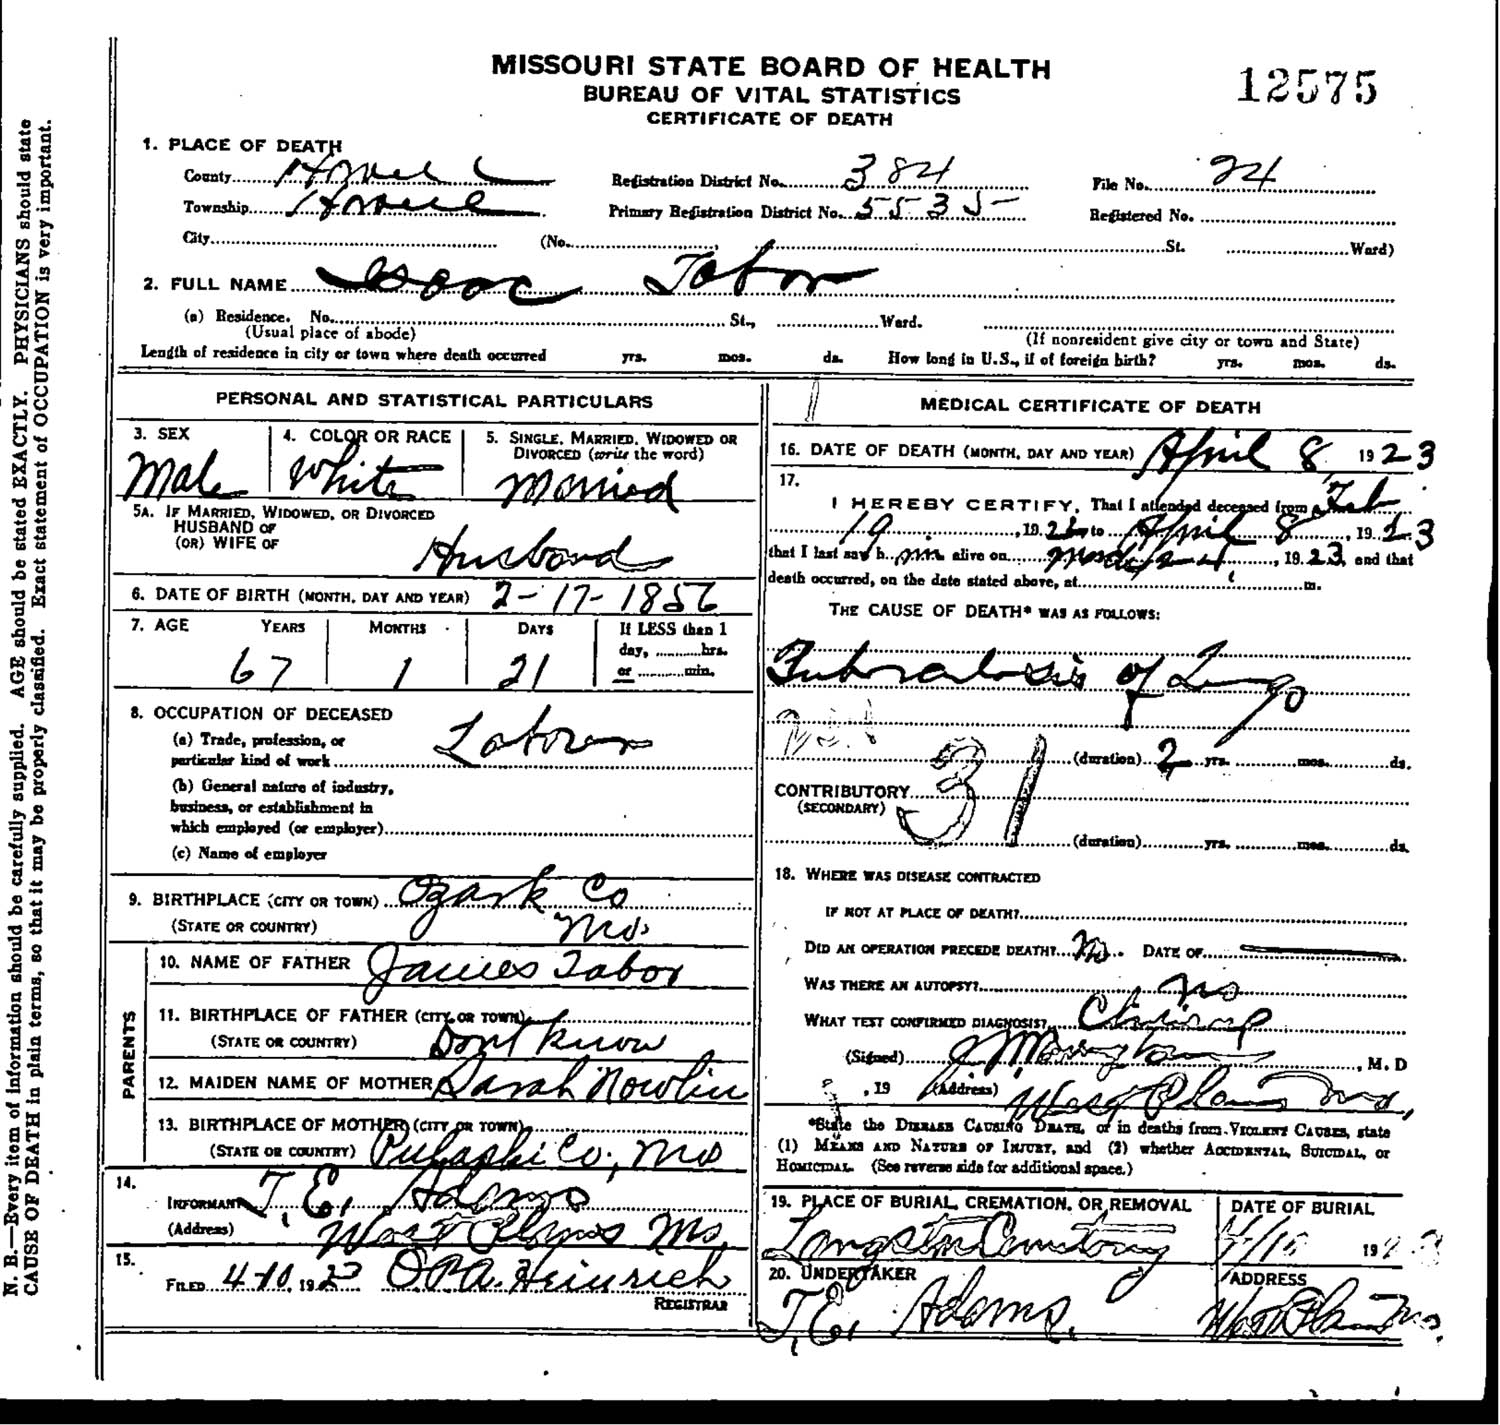 MISSOURI STATE BOARD OF HEALTH
BUREAU OF VITAL STATISTICS
CERTIFICATE OF DEATH
12575
1. PLACE OF DEATH
County Howell Registration District No. 384 File No. 24
Township Howell Primary Registration District No. 5535 Registered No.
City (No. , St. Ward)
2. FULL NAME Isaac Tabor
(a) Residence. No. St., Ward.
(Usual place of abode) (If nonresident give city or town and State)
Length of residence in city or town where death occurred yrs. mos. ds. How long in U.S., if of foreign birth? yrs. mos. ds.
PERSONAL AND STATISTICAL PARTICULARS
3. SEX 4. COLOR OR RACE 5. SINGLE, MARRIED, WIDOWED OR
DIVORCED (write the word)
Male White Married
5A. IF MARRIED, WIDOWED, OR DIVORCED
HUSBAND OF
(OR) WIFE OF Husband
6. DATE OF BIRTH (MONTH, DAY AND YEAR) 2-17-1856
7. AGE YEARS MONTHS DAYS If LESS than 1
day, hrs.
or min.
67 1 21
8. OCCUPATION OF DECEASED
(a) Trade, profession, or
particular kind of work Laborer
(b) General nature of industry,
business, or establishment in
which employed (or employer)
(c) Name of employer
9. BIRTHPLACE (CITY OR TOWN) Ozark Co
(STATE OR COUNTRY) Mo.
PARENTS
10. NAME OF FATHER James Tabor
11. BIRTHPLACE OF FATHER (CITY OR TOWN)
(STATE OR COUNTRY) Dont know
12. MAIDEN NAME OF MOTHER Sarah Nowlin
13. BIRTHPLACE OF MOTHER (CITY OR TOWN)
(STATE OR COUNTRY) Pulaski Co, Mo
14.
INFORMANT T. E. Adams
(Address) West Plains Mo.
15.
FILED 4-10, 1923 Heinrich
REGISTRAR
MEDICAL CERTIFICATE OF DEATH
16. DATE OF DEATH (MONTH, DAY AND YEAR) April 8 1923
17.
I HEREBY CERTIFY, That I attended deceased from Feb
19, 19 to April 8, 1923
that I last saw h im alive on March 24, 1923 and that
death occurred, on the date stated above, at m.
THE CAUSE OF DEATH* WAS AS FOLLOWS:
Tuberculosis of Lungs
(duration) 2 yrs. mos. ds.
31
CONTRIBUTORY
(SECONDARY)
(duration) yrs. mos. ds.
18. WHERE WAS DISEASE CONTRACTED
IF NOT AT PLACE OF DEATH?
DID AN OPERATION PRECEDE DEATH? No. DATE OF
WAS THERE AN AUTOPSY? No
WHAT TEST CONFIRMED DIAGNOSIS? Clinical
(Signed) , M. D
, 19 (Address) West Plains Mo.
*State the DISEASE CAUSING DEATH, or in deaths from VIOLENT CAUSES, state
(1) MEANS AND NATURE OF INJURY, and (2) whether ACCIDENTAL, SUICIDAL, or
HOMICIDAL. (See reverse side for additional space.)
19. PLACE OF BURIAL, CREMATION, OR REMOVAL DATE OF BURIAL
Langston Cemetery 4/10 1923
20. UNDERTAKER ADDRESS
T. E. Adams. West Plains Mo.
N. B.—Every item of information should be carefully supplied. AGE should be stated EXACTLY. PHYSICIANS should state
CAUSE OF DEATH in plain terms, so that it may be properly classified. Exact statement of OCCUPATION is very important.